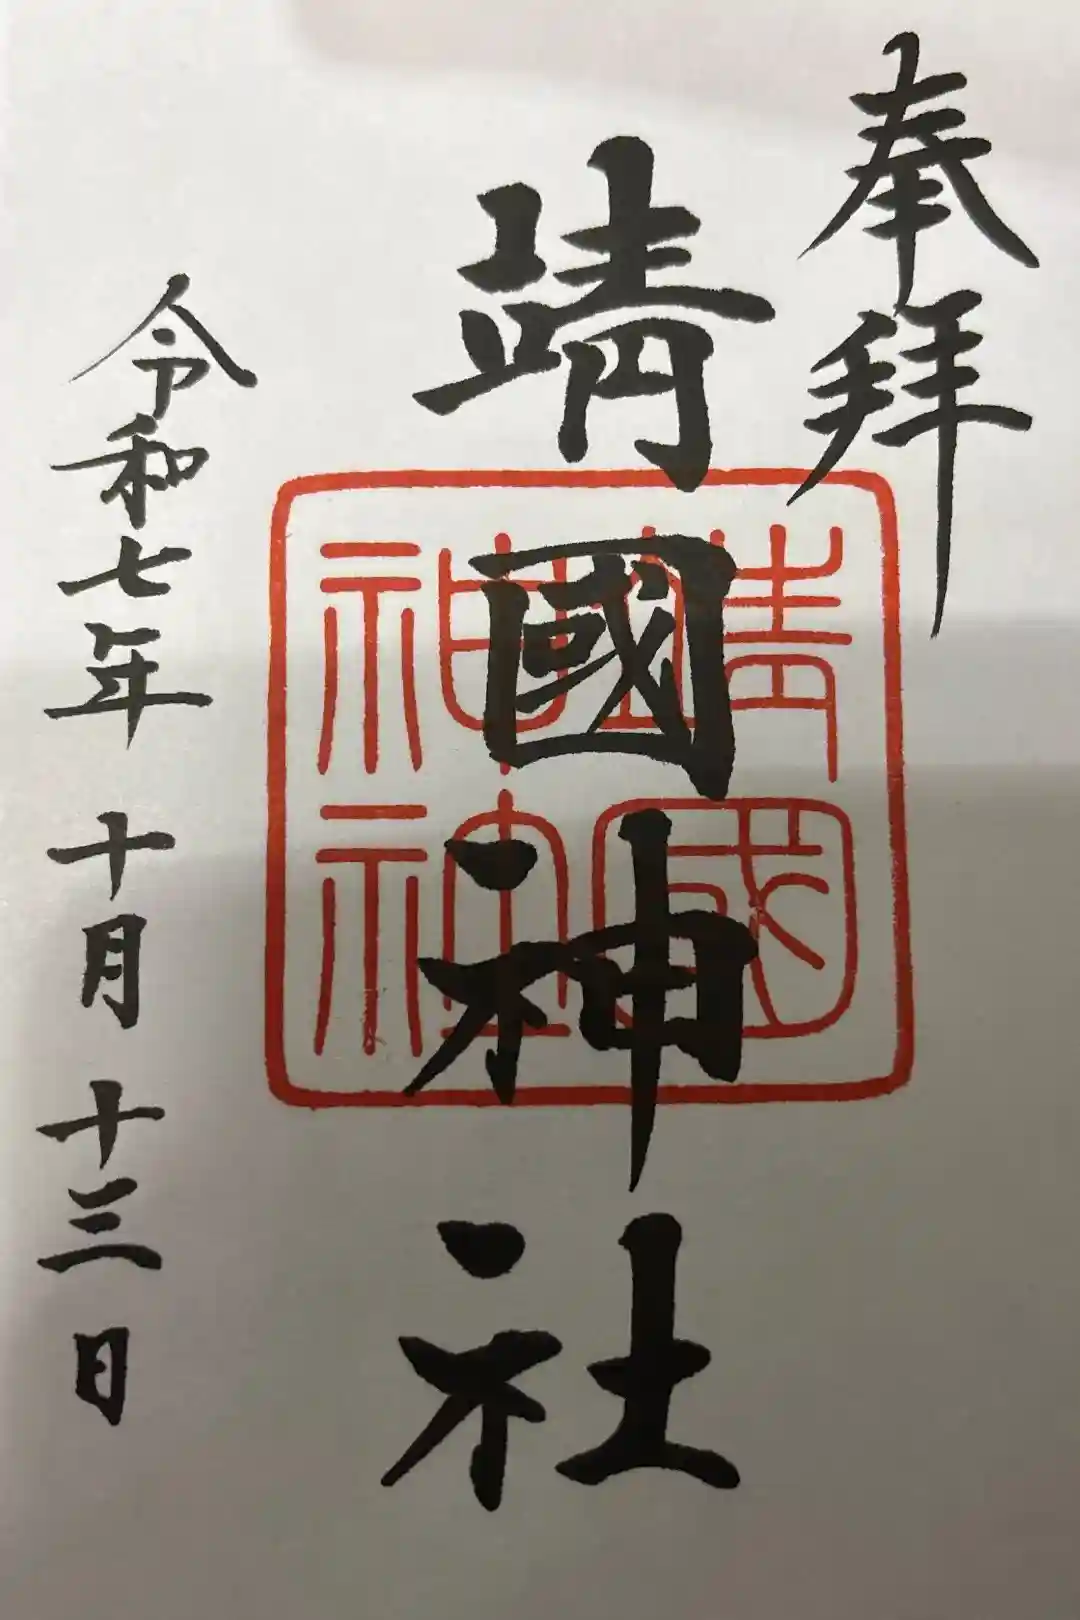 奉拝
靖國神社
靖國
神社
令和七年十月十三日